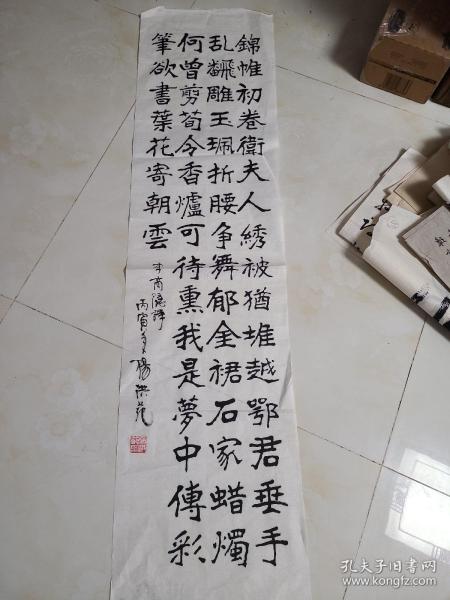 錦帷初卷衛夫人綉被猶堆越鄂君垂手
乱飜雕玉珮折腰争舞郁金裙石家蜡燭
何曾剪荀令香爐可待熏我是夢中傳彩
筆欲書葉花寄朝雲
李商隐詩
丙寅
孔夫子旧书网
www.kongfz.com